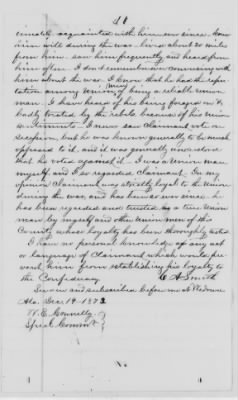 timately acquainted with him ever since. Knew
him well during the war - lived about 20 miles
from him. saw him frequently and heard from
him often. I don't remember conversing with
him about the war. I know that he had the repu-
tation among Union men of being a reliable Union
man. I have heard of his being foraged on &
badly treated by the rebels because of his Union
sentiments. I never saw Claimant vote on
secession, but he was known generally to be much
opposed to it, and it was generally understood
that he voted against it. I was a Union man
myself, and I so regarded claimant. In my
opinion Claimant was strictly loyal to the Union
during the war, and has been so ever since. he
has been regarded and trusted as a true Union
man by myself and other Union men of this
County whose loyalty has been thoroughly tested
I have no personal knowledge of any act
or language of Claimant which would pre-
vent him from establishing his loyalty to
the Confederacy
Smith
Sworn and subscribed before me at
Ala. Dec. 19 - 187
W. E. Connelly
Special Commr